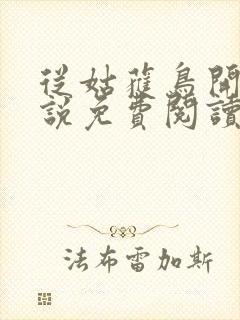 從姑獲鳥開
說免費閱讀
法布雷加斯